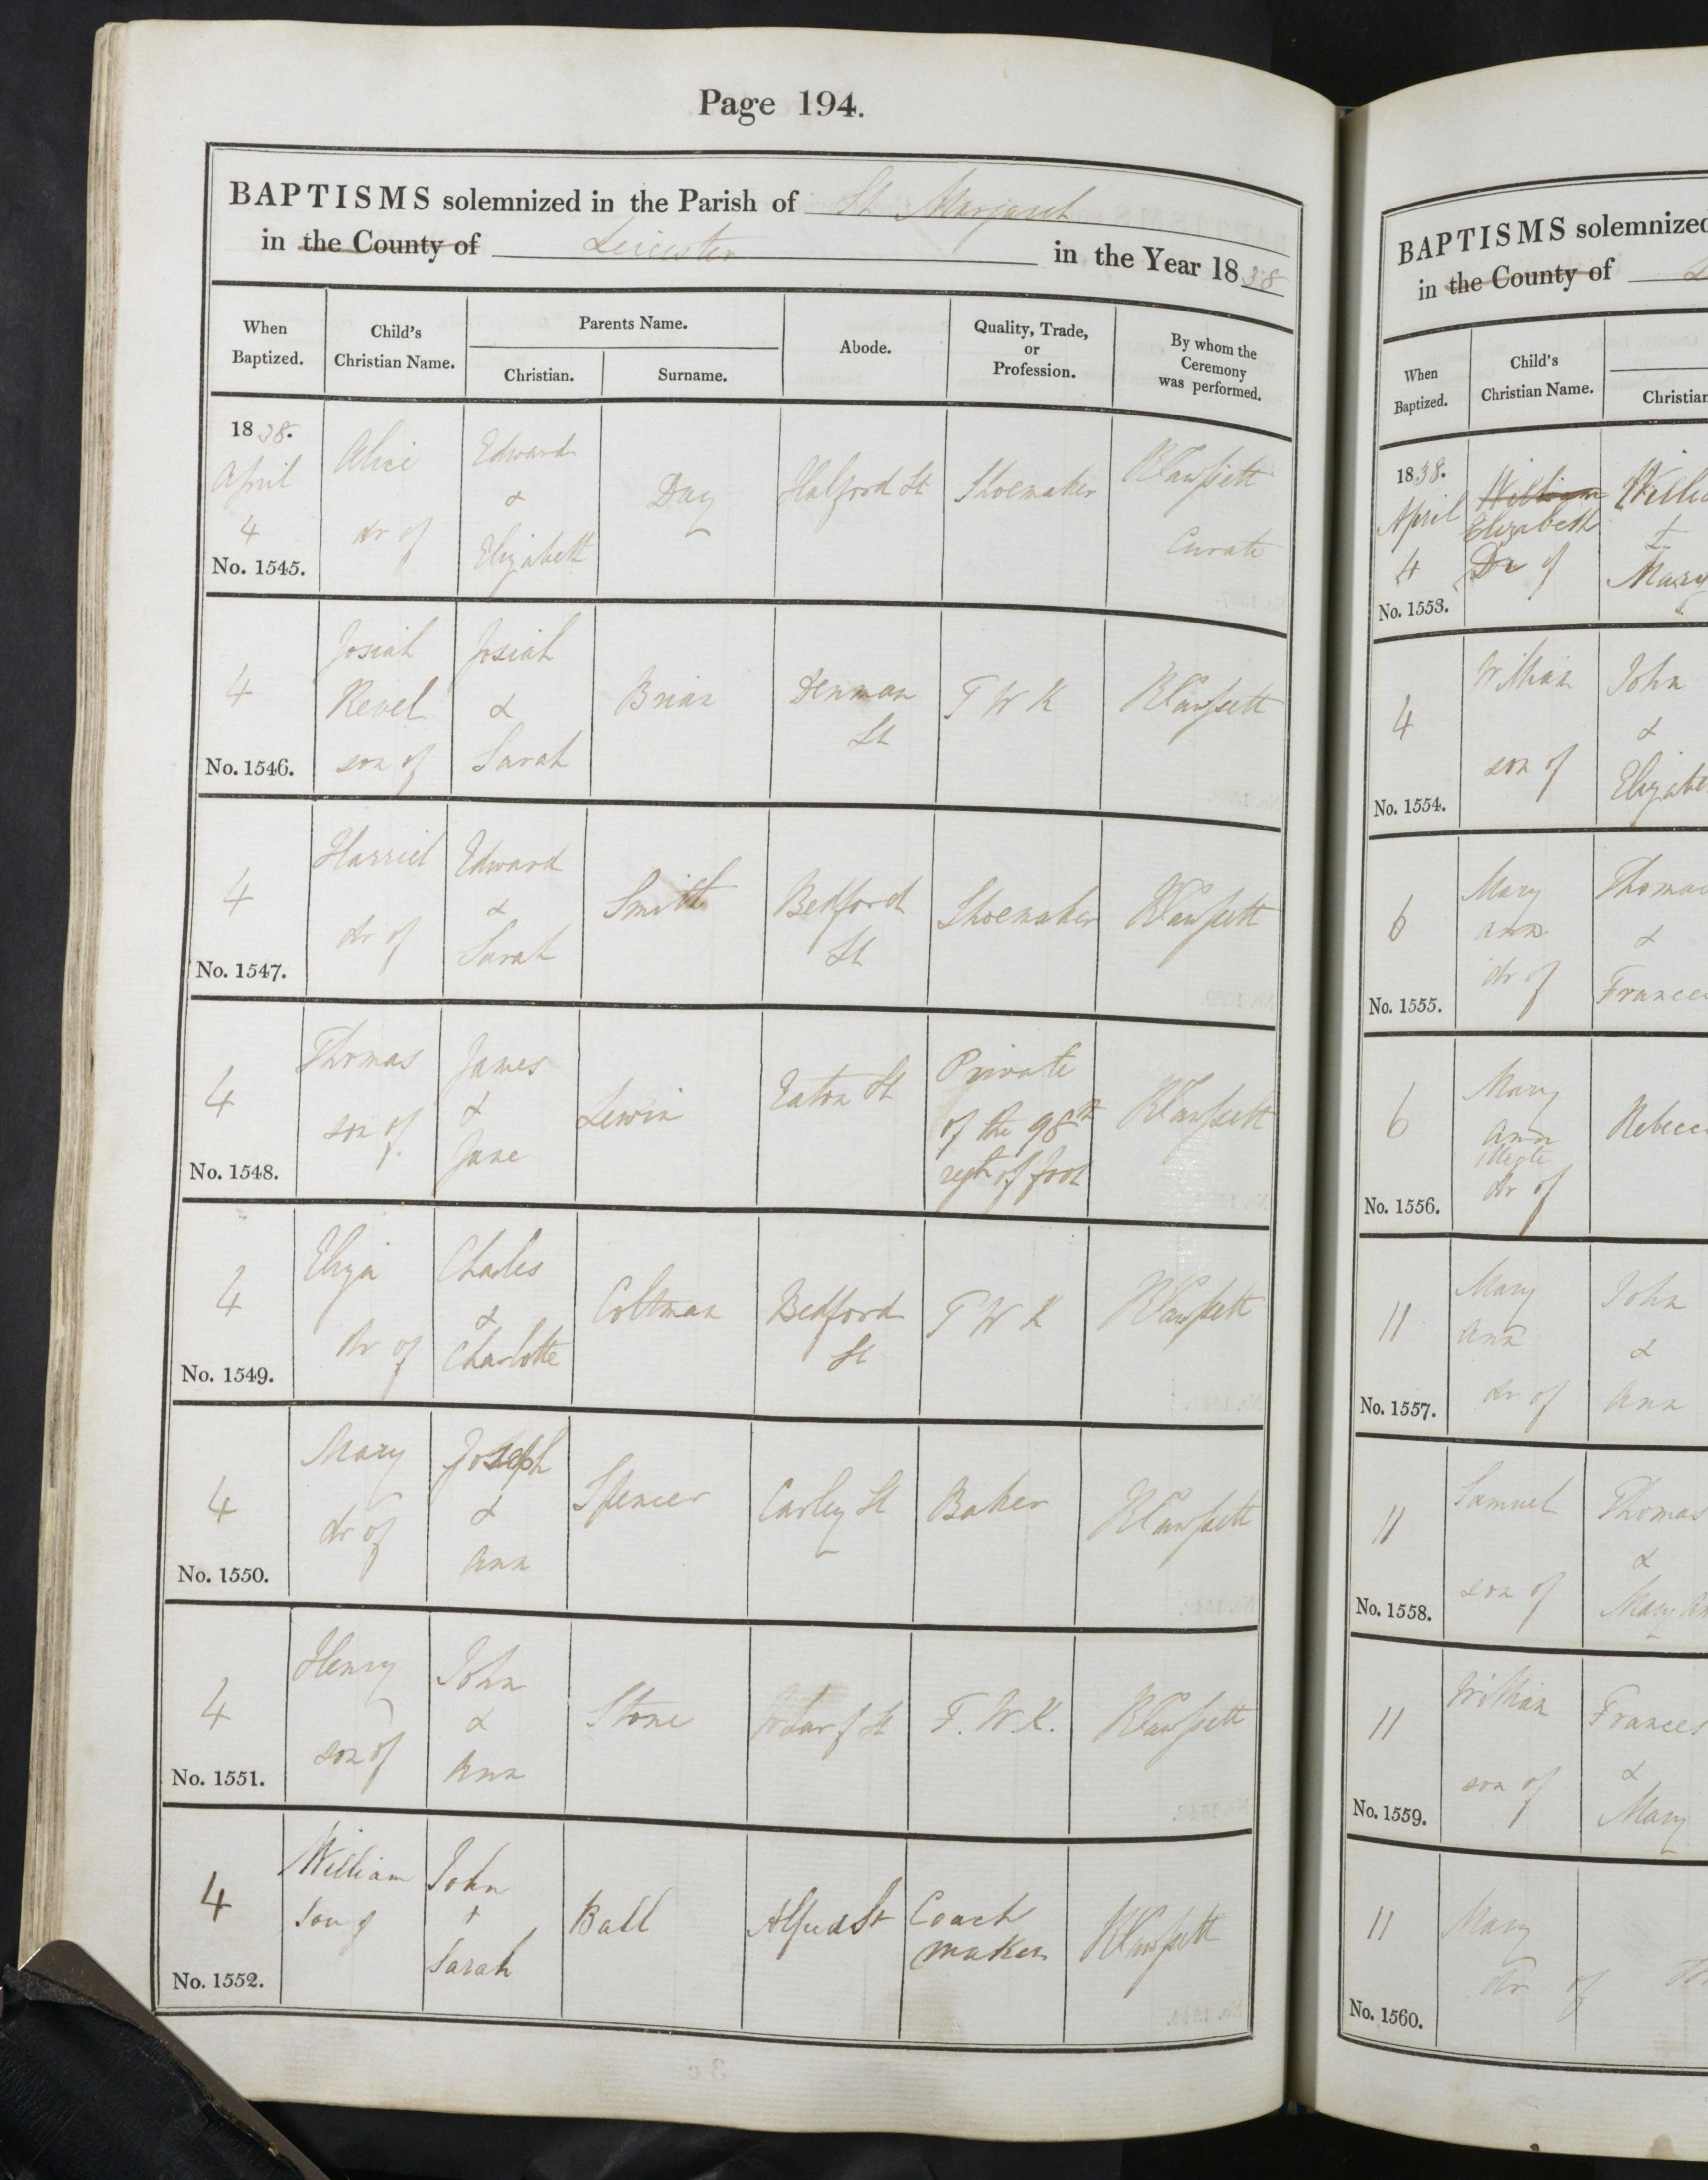 Page 194.
BAPTISMS solemnized in the Parish of St Margaret
in the County of Leicester in the Year 1838
When Baptized.
Child's Christian Name.
Parents Name.
Christian.
Surname.
Abode.
Quality, Trade, or Profession.
By whom the Ceremony was performed.
1838.
April
4
No. 1545.
Alice
dr of
Edward
&
Elizabeth
Day
Halford St
Shoemaker
Curate
4
No. 1546.
Josiah
Revel
son of
Josiah
&
Sarah
Brian
Denman
St
F W K
4
No. 1547.
Harriet
dr of
Edward
&
Sarah
Smith
Bedford
St
Shoemaker
4
No. 1548.
Thomas
son of
James
&
Jane
Lewin
Eaton St
Private
of the 98th
regt of foot
4
No. 1549.
Eliza
dr of
Charles
&
Charlotte
Coltman
Bedford
St
F W K
4
No. 1550.
Mary
dr of
Joseph
&
Ann
Spencer
Carley St
Baker
4
No. 1551.
Henry
son of
John
&
Ann
Stone
Wharf St
F. W. K.
4
No. 1552.
William
son of
John
+
Sarah
Ball
Alfred St
Coach
maker
BAPTISMS solemnized
in the County of
When Baptized.
Child's Christian Name.
Christian
1838.
April
4
No. 1553.
William
Elizabeth
Dr of
Willia
&
Mary
4
No. 1554.
William
son of
John
&
Elizabe
6
No. 1555.
Mary
ann
dr of
Thomas
&
Frances
6
No. 1556.
Mary
ann
illegte
dr of
Rebecc
11
No. 1557.
Mary
Ann
dr of
John
&
Ann
11
No. 1558.
Samuel
son of
Thomas
&
Mary An
11
No. 1559.
William
son of
Frances
&
Mary
11
No. 1560.
Mary
dr of